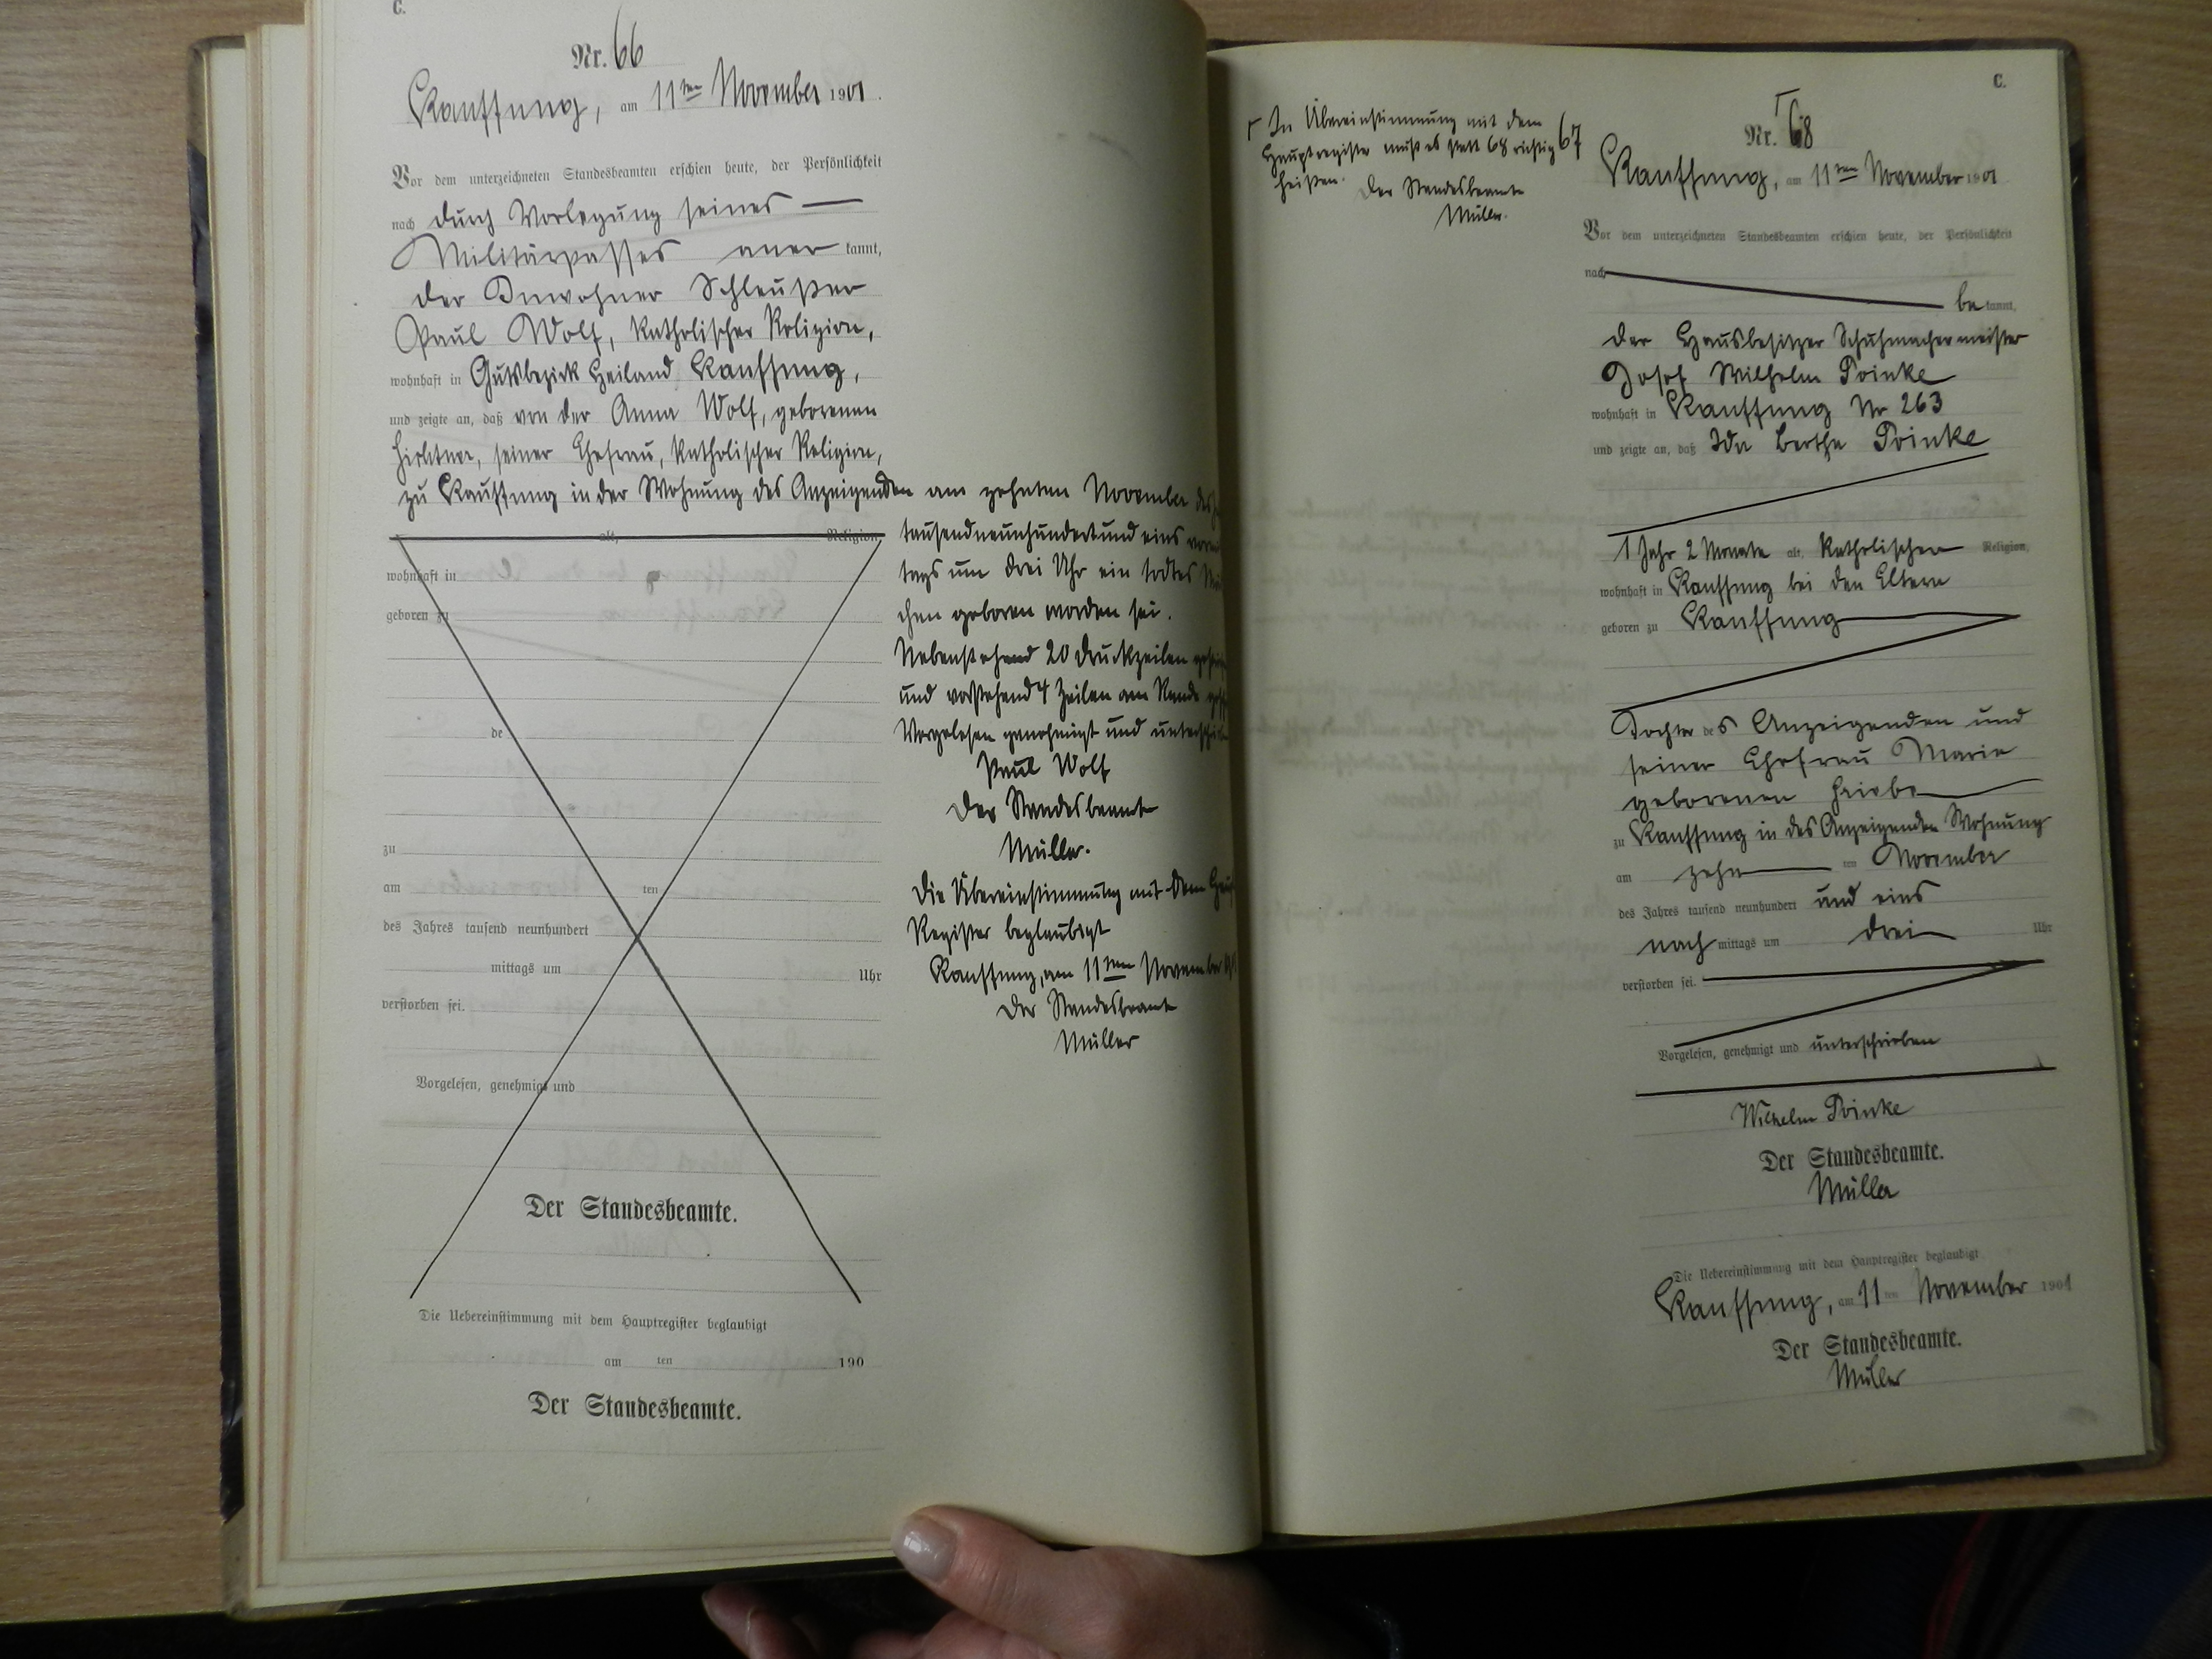 C.
Nr. 66
Kauffung, am 11ten November 1901.
Vor dem unterzeichneten Standesbeamten erschien heute, der Persönlichkeit
nach durch Vorlegung seines —
Militärpasses anerkannt,
der Inwohner Schleußer
Paul Wolf, katholischer Religion,
wohnhaft in Gutsbezirk Heiland Kauffung,
und zeigte an, daß von der Anna Wolf, geborenen
seiner Ehefrau, katholischer Religion,
zu Kauffung in der Wohnung des Anzeigenden am zehnten November des
tausendneunhundertundeins
tags um drei Uhr ein todtes
chen geboren worden sei.
Nebenstehend 20 Druckzeilen
und vorstehend 4 Zeilen am Rande
Vorgelesen genehmigt und
Paul Wolf
Der Standesbeamte
Müller.
Die Übereinstimmung mit dem
Register beglaubigt
Kauffung, am 11ten November
Der Standesbeamte
Müller
alt, Religion,
wohnhaft in
geboren zu
de
zu
am ten
des Jahres tausend neunhundert
mittags um Uhr
verstorben sei.
Vorgelesen, genehmigt und
Der Standesbeamte.
Die Uebereinstimmung mit dem Hauptregister beglaubigt
am ten 190
Der Standesbeamte.
C.
Γ In Übereinstimmung mit dem
Hauptregister muß es statt 68 richtig 67
heißen. Der Standesbeamte
Müller.
Nr. Γ 68
Kauffung, am 11ten November 1901
Vor dem unterzeichneten Standesbeamten erschien heute, der Persönlichkeit
nach
bekannt,
der Hausbesitzer Schuhmachermeister
Josef Wilhelm Poinke
wohnhaft in Kauffung Nr 263
und zeigte an, daß Ida Bertha Poinke
1 Jahr 2 Monate alt, katholischer Religion,
wohnhaft in Kauffung bei den Eltern
geboren zu Kauffung
Tochter des Anzeigenden und
seiner Ehefrau Marie
geborenen Friebe
zu Kauffung in des Anzeigenden Wohnung
am zehn ten November
des Jahres tausend neunhundert und eins
nachmittags um drei Uhr
verstorben sei.
Vorgelesen, genehmigt und unterschrieben
Wilhelm Poinke
Der Standesbeamte.
Müller
Die Uebereinstimmung mit dem Hauptregister beglaubigt
Kauffung, am 11 ten November 1901
Der Standesbeamte.
Müller